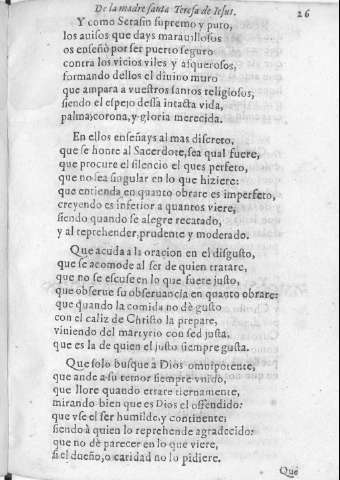 De la madre santa Teresa de Iesus. 26
Y como Serafin supremo y puro,
los auisos que days marauillosos
os enseñò por ser puerto seguro
contra los vicios viles y asquerosos,
formando dellos el diuino muro
que ampara a vuestros santos religiosos,
siendo el espejo dessa intacta vida,
palma, corona, y gloria merecida.
En ellos enseñays al mas discreto,
que se honre al Sacerdote, sea qual fuere,
que procure el silencio el ques perfeto,
que no sea singular en lo que hiziere:
que entienda en quanto obrare es imperfeto,
creyendo es inferior a quantos viere,
siendo quando se alegre recatado,
y al reprehender, prudente y moderado.
Que acuda a la oracion en el disgusto,
que se acomode al ser de quien tratare,
que no se escuse en lo que fuere justo,
que obserue su obseruancia en quanto obrare:
que quando la comida no dè gusto
con el caliz de Christo la prepare,
viniendo del martyrio con sed justa,
que es la de quien el justo siempre gusta.
Que solo busque a Dios omnipotente,
que ande a su temor siempre vnido,
que llore quando errare tiernamente,
mirando bien que es Dios el offendido:
que vse el ser humilde, y continente;
siendo à quien lo reprehende agradecido:
que no dè parecer en lo que viere,
si el dueño, o caridad no lo pidiere.
Que